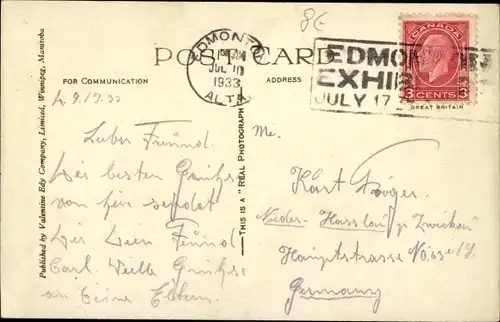 8€
POST CARD
FOR COMMUNICATION
ADDRESS
EDMONTON
JUL 10
1933
ALTA.
EDMONTON
EXHIB
JULY 17
CANADA
3 CENTS 3
GREAT BRITAIN
Published by Valentine Edy Company, Limited, Winnipeg, Manitoba
THIS IS A "REAL PHOTOGRAPH
Lieber Freund.
Die besten Grüße
von hier sendet
Dir Dein Freund
Carl. Viele Grüße
an Deine Eltern.
Mr.
Kurt
Nieder-Hasslau / Zwickau
Hauptstrasse No. 63
Germany